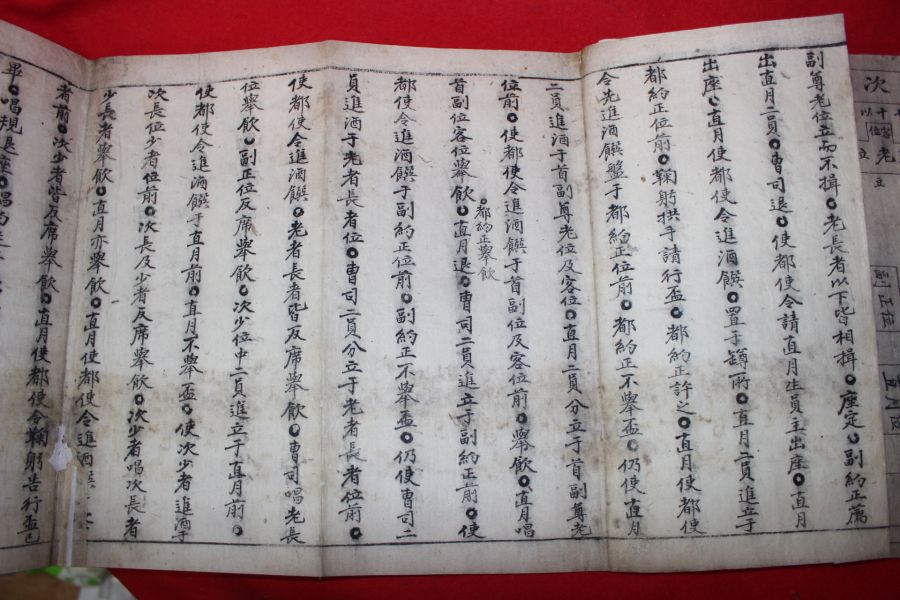 次
十客老
以位立
立
副正位
直月位
副尊老位立而不揖○老長者以下皆相揖○座定○副約正薦
出直月二員○曹司退○使都使令請直月生員主出座○直月
出座○直月使都使令進酒饌○置于罇所○直月二員進立于
都約正位前○鞠躬拱手請行盃○都約正許之○直月使都使
令先進酒饌盤于都約正位前○都約正不擧盃○仍使直月
二員進酒于首副尊老位及客位○直月二員分立于首副尊老
位前○使都使令進酒饌于首副位及客位前○擧飮○直月唱
首副位客位擧飮○都約正擧飮○直月退○曹司二員進立于副約正前○使
都使令進酒饌于副約正位前○副約正不擧盃○仍使曹司二
員進酒于老者長者位○曹司二員分立于老者長者位前○
使都使令進酒饌○老者長者皆反席擧飮○曹司唱老長
位擧飮○副正位反席擧飮○次少位中二員進立于直月前○
使都使令進酒饌于直月前○直月不擧盃○使次少者進酒于
次長位少者位前○次長及少者反席擧飮○次少者唱次長者
少長者擧飮○直月亦擧飮○直月使都使令進酒
者前○次少者皆反席擧飮○直月使都使令鞠躬告行盃已
畢○唱規退座○唱